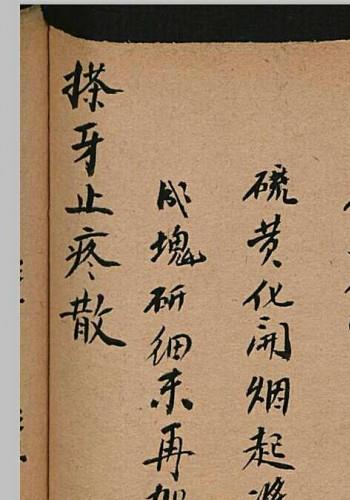 硫黄化開烟起將
成塊研細末再加
搽牙止疼散